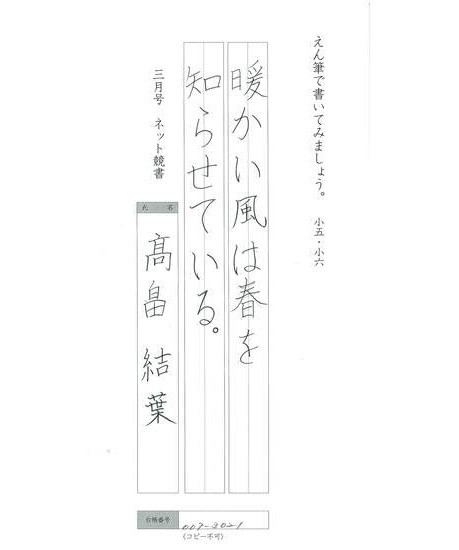 えん筆で書いてみましょう。 小五・小六
暖かい風は春を
知らせている。
三月号 ネット競書
氏名
髙畠 結葉
合格番号
007-3021
(コピー不可)